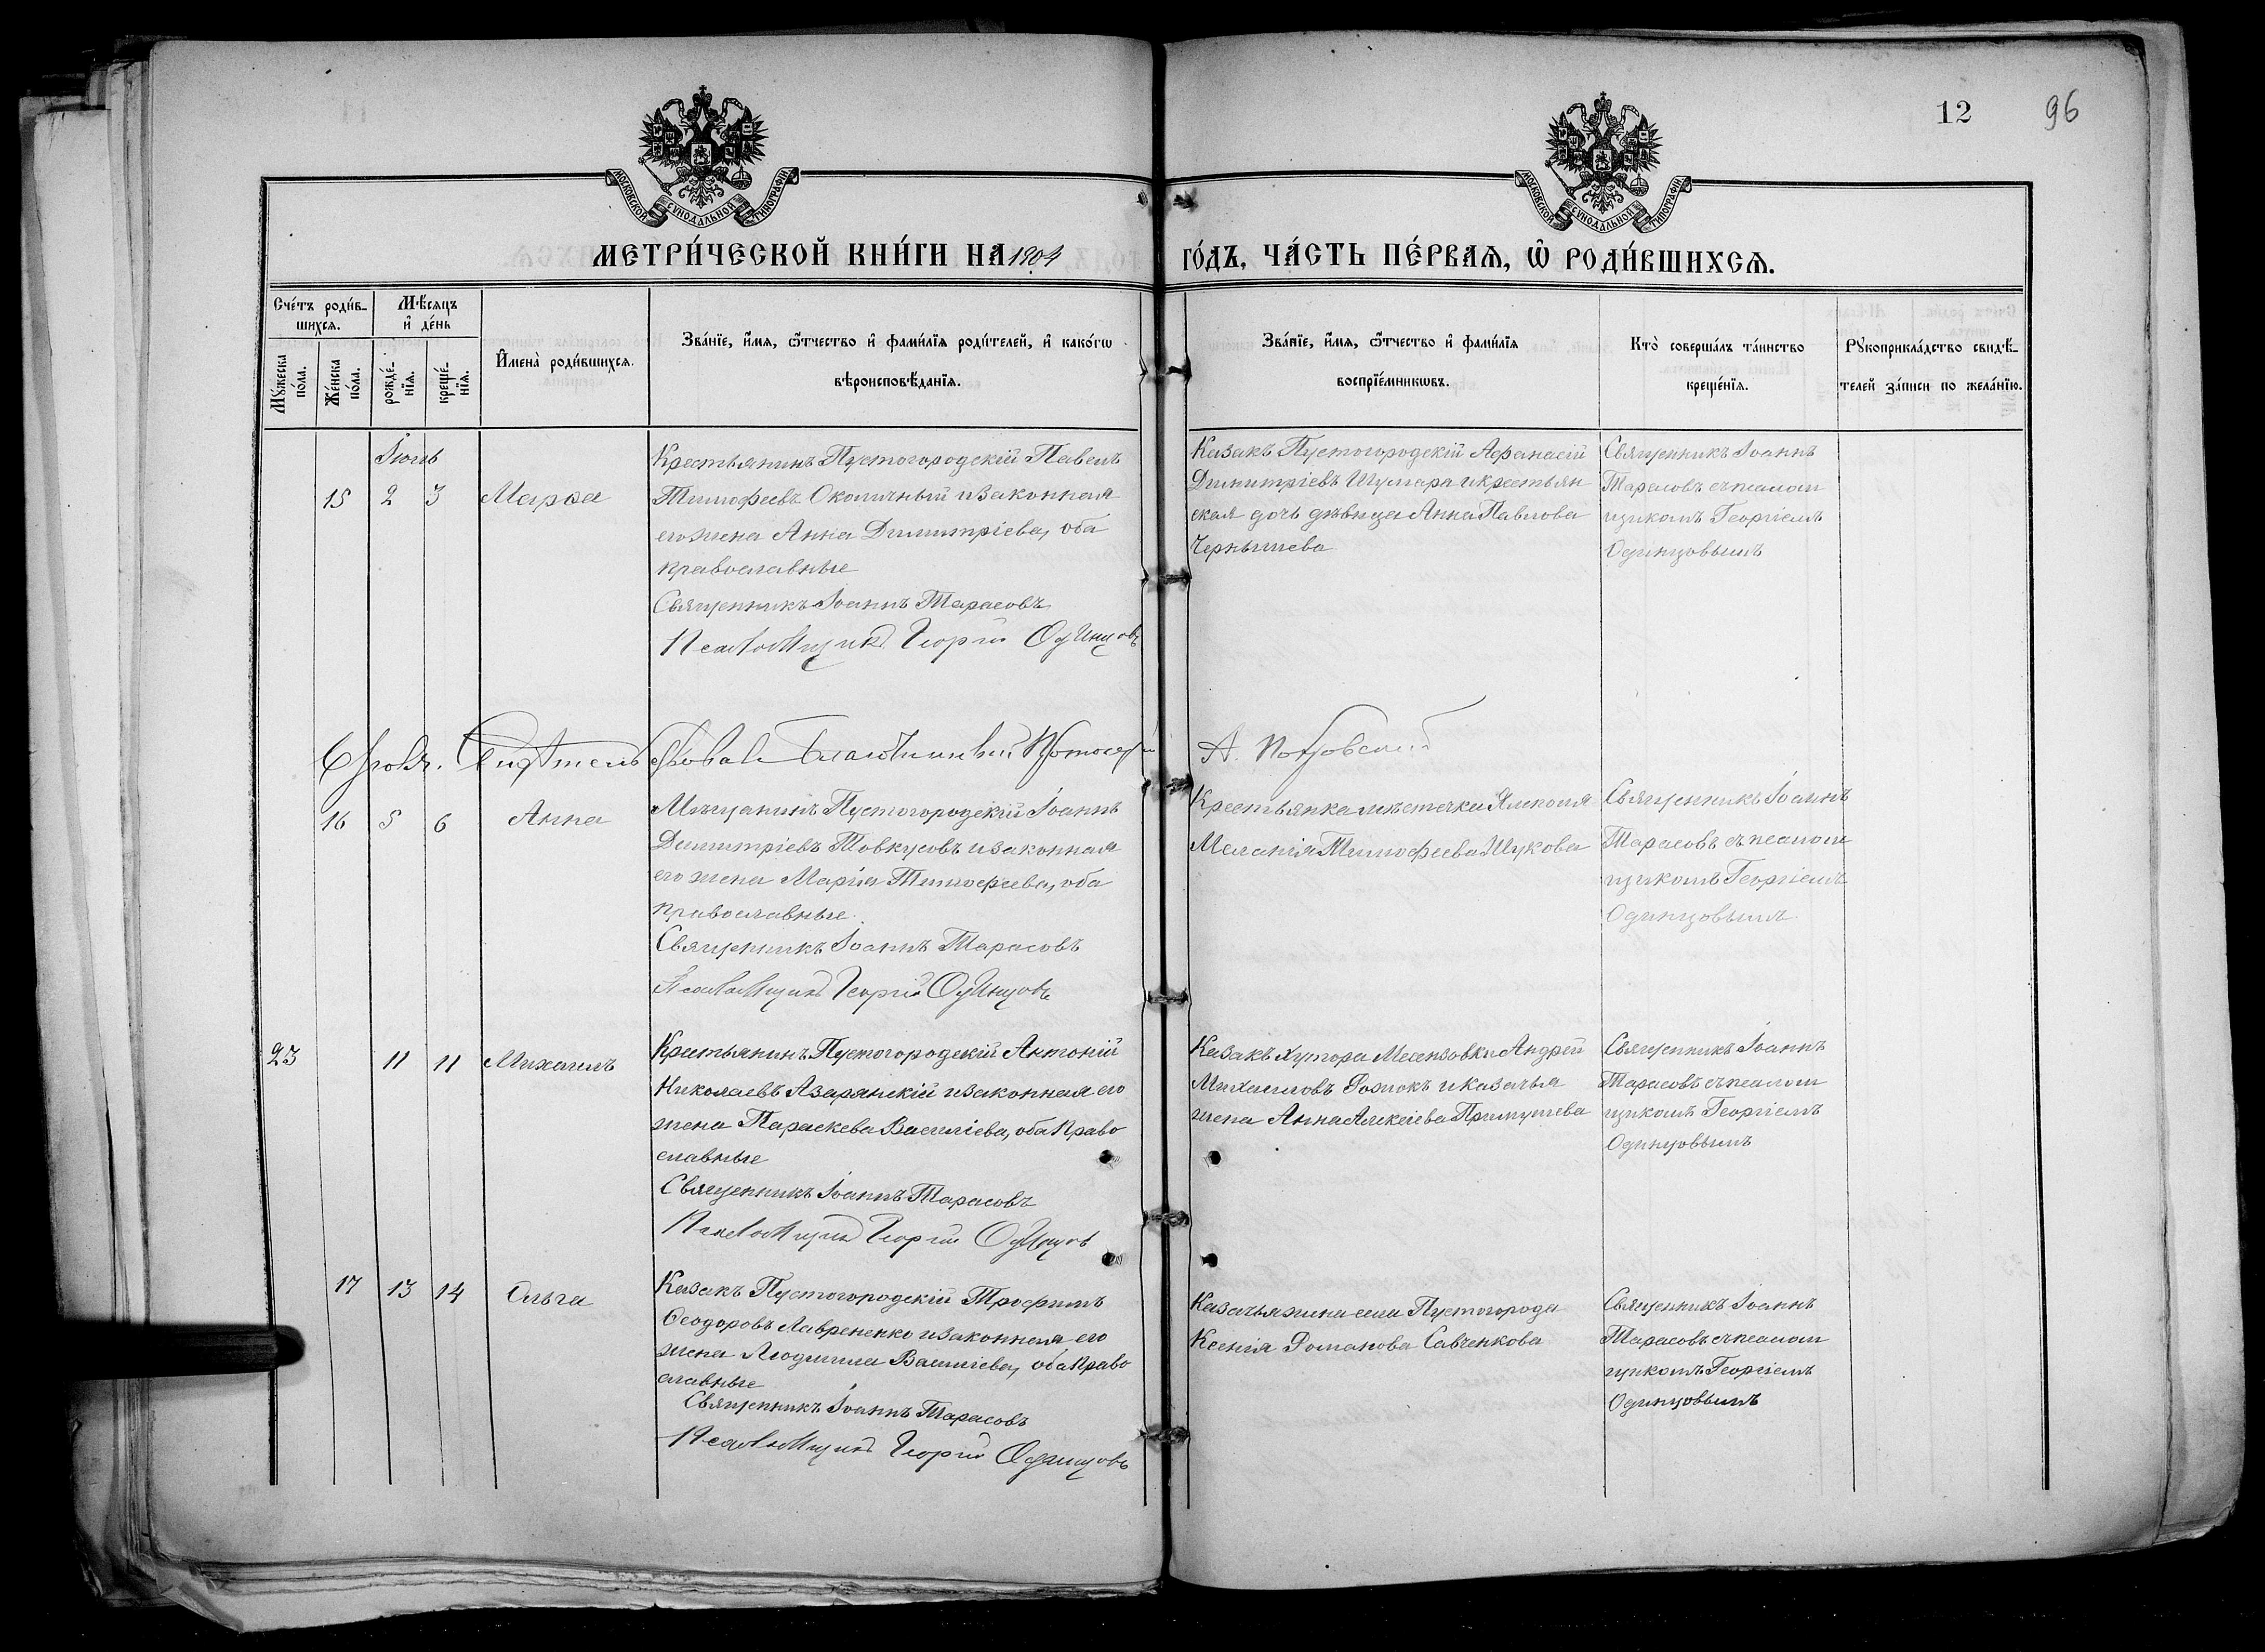 12
96
МОСКОВСКОЙ СѴНОДАЛЬНОЙ ТИПОГРАФІИ.
МОСКОВСКОЙ СѴНОДАЛЬНОЙ ТИПОГРАФІИ.
МЕТРИ́ЧЕСКОЙ КНИ́ГИ НА 1904
ГО́ДЪ, ЧА́СТЬ ПЕ́РВАѦ, Ѽ РОДИ́ВШИХСѦ.
Сче́тъ роди́в-
шихсѧ.
Мѣ́сѧцъ
и҆ де́нь
Мꙋ́жеска
по́ла.
Же́нска
по́ла.
рожде́-
нїѧ.
креще́-
нїѧ.
И҆мена̀ роди́вшихсѧ.
Зва́нїе, и҆́мѧ, ѻ҆́тчество и҆ фами́лїѧ роди́телей, и҆ како́гѡ
вѣроисповѣ́данїѧ.
Зва́нїе, и҆́мѧ, ѻ҆́тчество и҆ фами́лїѧ
воспрїе́мникѡвъ.
Кто̀ соверша́лъ та́инство
креще́нїѧ.
Рꙋкоприкла́дство свидѣ́-
телей за́писи по жела́нїю.
Іюнь
15 2 3 Марѳа
Крестьянинъ Пустогородскій Павелъ
Тимофеевъ Околичный и законная
его жена Анна Димитріева, оба
православные
Священникъ Іоаннъ Тарасовъ
Псаломщикъ Георгій Одинцовъ
Казакъ Пустогородскій Афанасій
Димитріевъ Шумара и крестьян
ская дочь дѣвица Анна Павлова
Чернышева
Священникъ Іоаннъ
Тарасовъ съ псалом
щикомъ Георгіемъ
Одинцовымъ
Благочинный
А.
16 5 6 Анна
Мѣщанинъ Пустогородскій Іоаннъ
Димитріевъ Товкусовъ и законная
его жена Марія Тимофеева, оба
православные
Священникъ Іоаннъ Тарасовъ
Псаломщикъ Георгій Одинцовъ
Крестьянка мѣстечка Ямполя
Меланія Тимофеева Шукова
Священникъ Іоаннъ
Тарасовъ съ псалом
щикомъ Георгіемъ
Одинцовымъ
23 11 11 Михаилъ
Крестьянинъ Пустогородскій Антоній
Николаевъ Азаранскій и законная его
жена Параскева Василіева, оба право
славные
Священникъ Іоаннъ Тарасовъ
Псаломщикъ Георгій Одинцовъ
Казакъ хутора Андрей
Михаиловъ Рожокъ и казачья
жена Анна Алексіева
Священникъ Іоаннъ
Тарасовъ съ псалом
щикомъ Георгіемъ
Одинцовымъ
17 13 14 Ольга
Казакъ Пустогородскій Трофимъ
Ѳеодоровъ Лавpененко и законная его
жена Людмила Василіева, оба право
славные
Священникъ Іоаннъ Тарасовъ
Псаломщикъ Георгій Одинцовъ
Казачья жена села Пустогорода
Ксенія Романова Савченкова
Священникъ Іоаннъ
Тарасовъ съ псалом
щикомъ Георгіемъ
Одинцовымъ